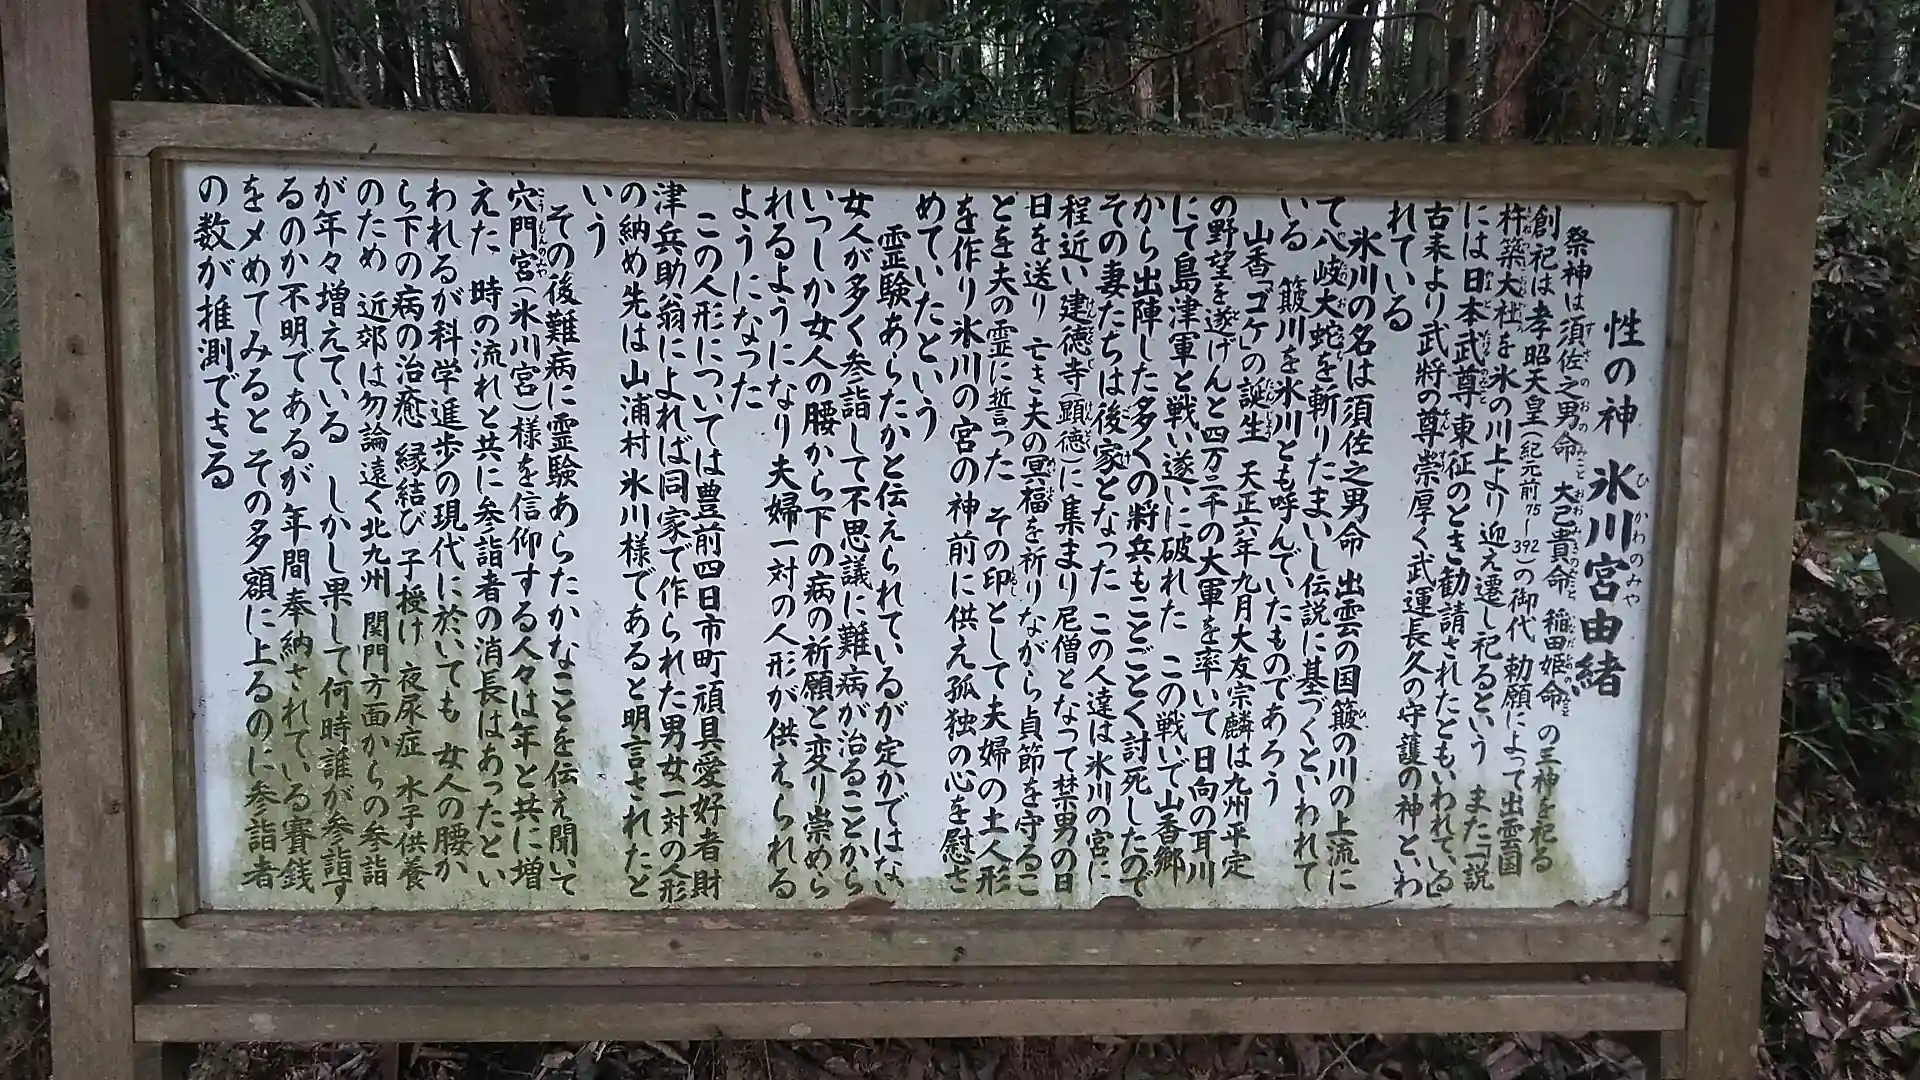 性の神 氷川宮由緒
祭神は須佐之男命 大己貴命 稲田姫命の三神を祀る
創祀は孝昭天皇(紀元前75-392)の御代 勅願によって出雲国
杵築大社を氷の川上より迎え遷し祀るという また「説
には日本武尊東征のとき勧請されたともいわれている」
古来より武将の尊崇厚く武運長久の守護の神といわ
れている
氷川の名は須佐之男命 出雲の国簸の川の上流に
て八岐大蛇を斬りたまいし伝説に基づくといわれて
いる 簸川を氷川とも呼んでいたものであろう
山香「ゴケ」の誕生 天正六年九月大友宗麟は九州平定
の野望を遂げんと四万三千の大軍を率いて日向の耳川
にて島津軍と戦い遂いに破れた この戦いで山香郷
から出陣した多くの将兵もことごとく討死したので
その妻たちは後家となった この人達は氷川の宮に
程近い建徳寺(顕徳)に集まり尼僧となって禁男の日
日を送り 亡き夫の冥福を祈りながら貞節を守るこ
とを夫の霊に誓った その印として夫婦の土人形
を作り氷川の宮の神前に供え孤独の心を慰さ
めていたという
霊験あらたかと伝えられているが定かではない
女人が多く参詣して不思議に難病が治ることから
いつしか女人の腰から下の病の祈願と変り崇めら
れるようになり夫婦一対の人形が供えられる
ようになった
この人形については豊前四日市町頑具愛好者財
津兵助翁によれば同家で作られた男女一対の人形
の納め先は山浦村氷川様であると明言されたと
いう
その後難病に霊験あらたかなことを伝え聞いて
穴門宮(氷川宮)様を信仰する人々は年と共に増
えた 時の流れと共に参詣者の消長はあったとい
われるが科学進歩の現代に於いても 女人の腰か
ら下の病の治癒 縁結び 子授け 夜尿症 水子供養
のため 近郊は勿論遠く北九州 関門方面からの参詣
が年々増えている しかし果して何時誰が参詣す
るのか不明であるが年間奉納されている賽銭
を〆めてみるとその多額に上るのに参詣者
の数が推測できる